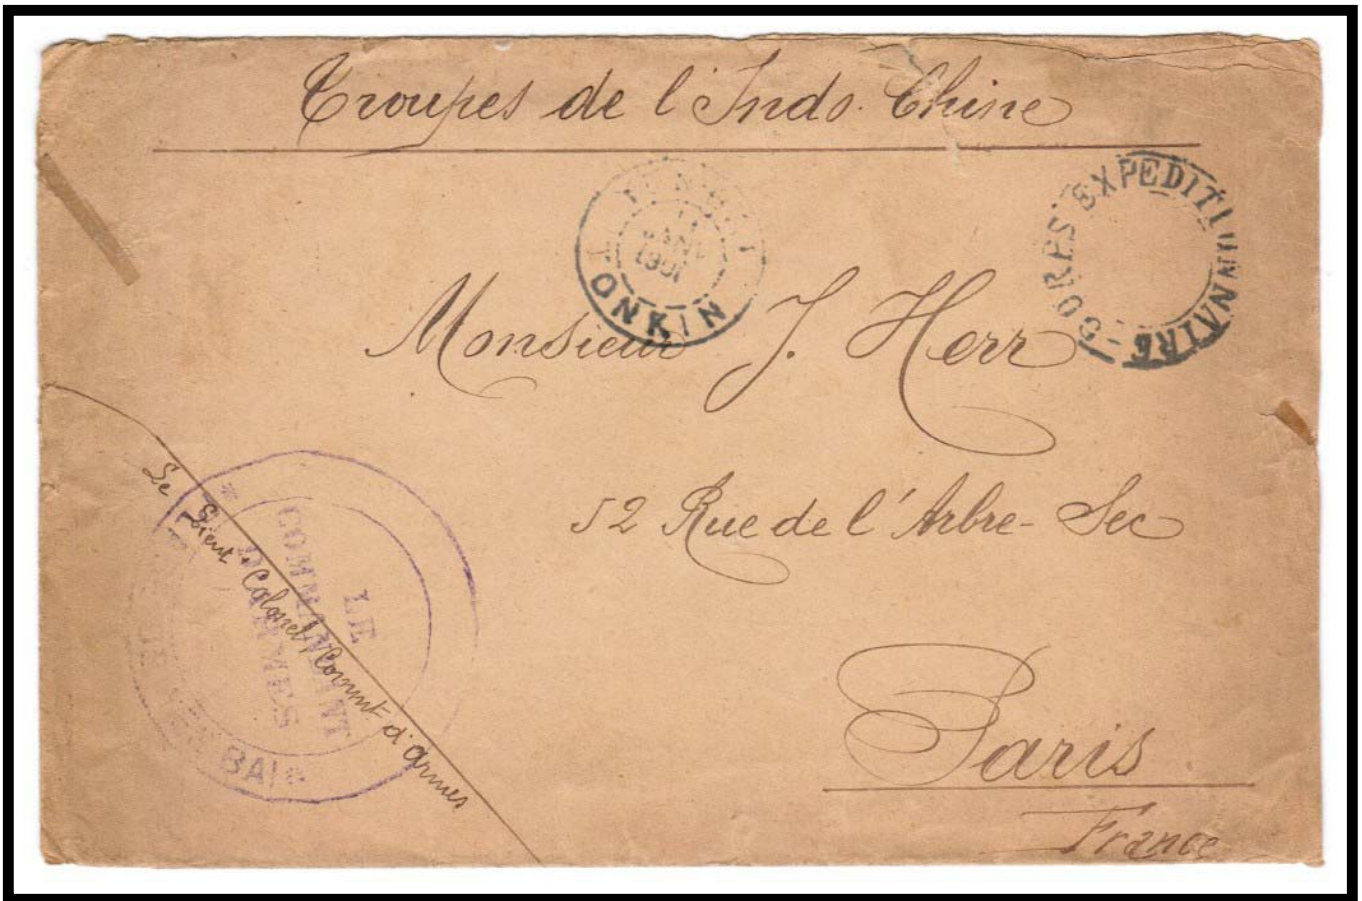 Troupes de l'Indo. Chine
TONKIN
1901
CORPS EXPEDITIONNAIRE
Monsieur J. Herr
52 Rue de l'Arbre-Sec
Paris
France
Le Lieut. Colonel, Commt d'armes
LE
COMMANDANT
D'ARMES
BAI